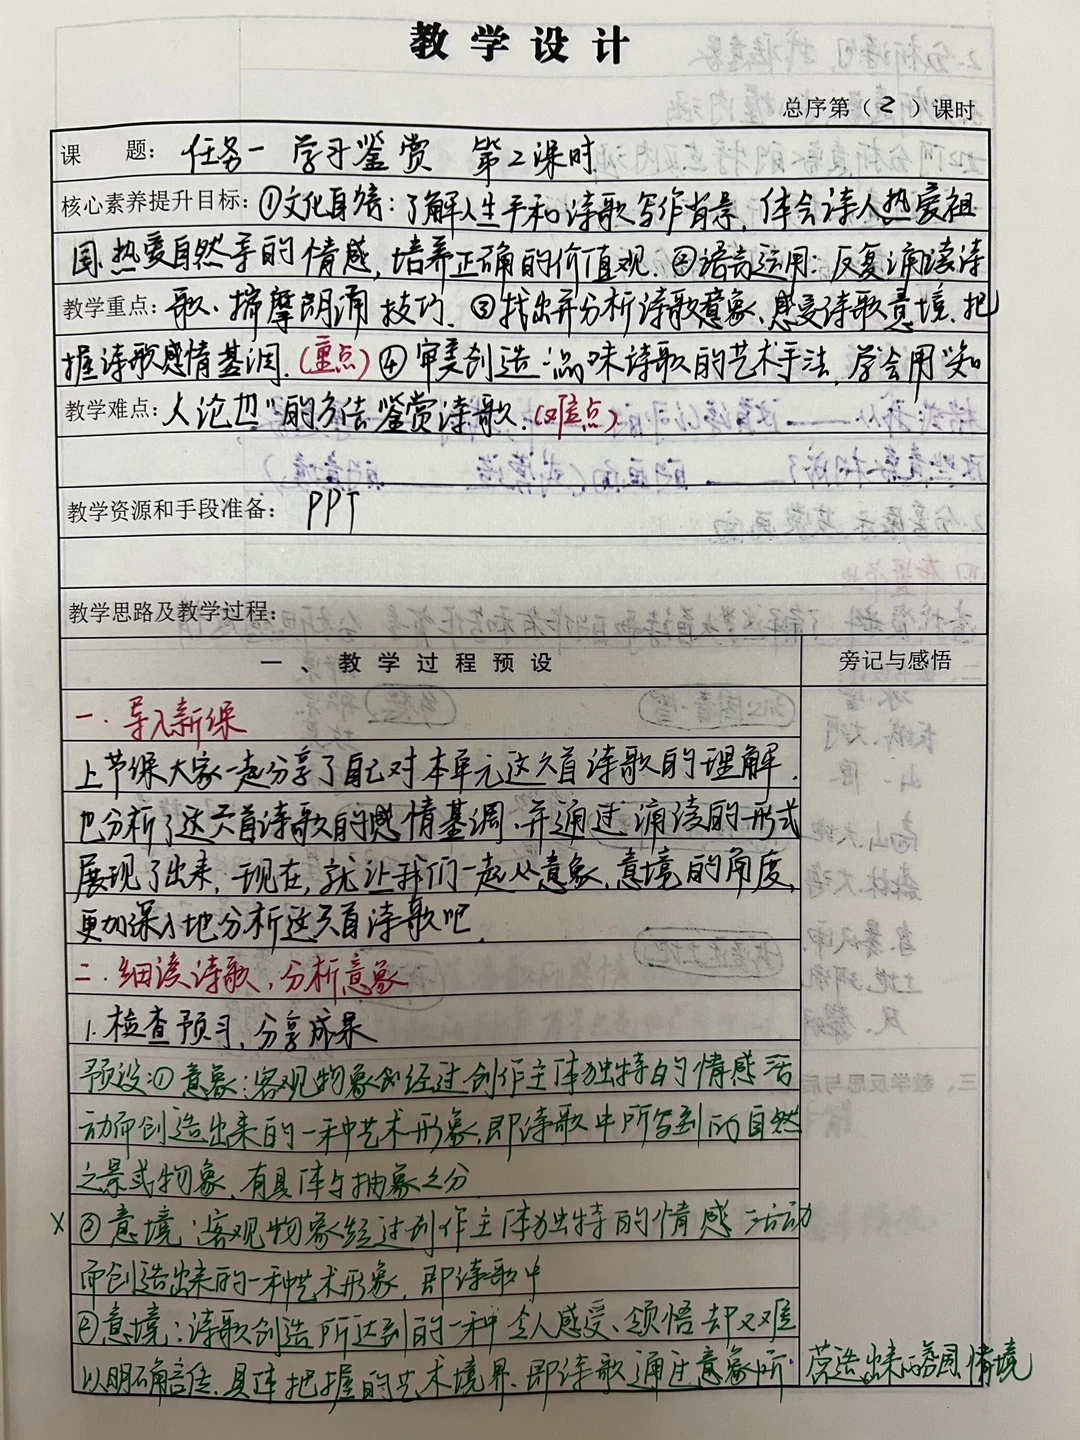 教学设计
总序第（2）课时
课 题：任务一 学习鉴赏 第2课时
核心素养提升目标：①文化自信：了解人生平和诗歌写作背景，体会诗人热爱祖
国、热爱自然等的情感，培养正确的价值观、②语言运用：反复诵读诗
教学重点：歌、揣摩朗诵技巧、③找出并分析诗歌意象、感受诗歌意境、把
握诗歌感情基调、（重点）④审美创造：品味诗歌的艺术手法，学会用“知
教学难点：人论世”的方法鉴赏诗歌。（难点）
教学资源和手段准备：PPT
教学思路及教学过程：
一、教学过程预设
旁记与感悟
一. 导入新课
上节课大家一起分享了自己对本单元这六首诗歌的理解.
也分析了这六首诗歌的感情基调、并通过诵读的形式
展现了出来，现在，就让我们一起从意象、意境的角度，
更加深入地分析这六首诗歌吧.
二. 细读诗歌，分析意象
1. 检查预习，分享成果
预设：①意象：客观物象即经过创作主体独特的情感活
动而创造出来的一种艺术形象，即诗歌中所写到的自然
之景或物象，有具体与抽象之分
X ②意境：客观物象经过创作主体独特的情感活动
而创造出来的一种艺术形象，即诗歌中
②意境：诗歌创造所达到的一种令人感受、领悟却又难
以明确言传、具体把握的艺术境界，即诗歌通过意象所营造出来的氛围、情境